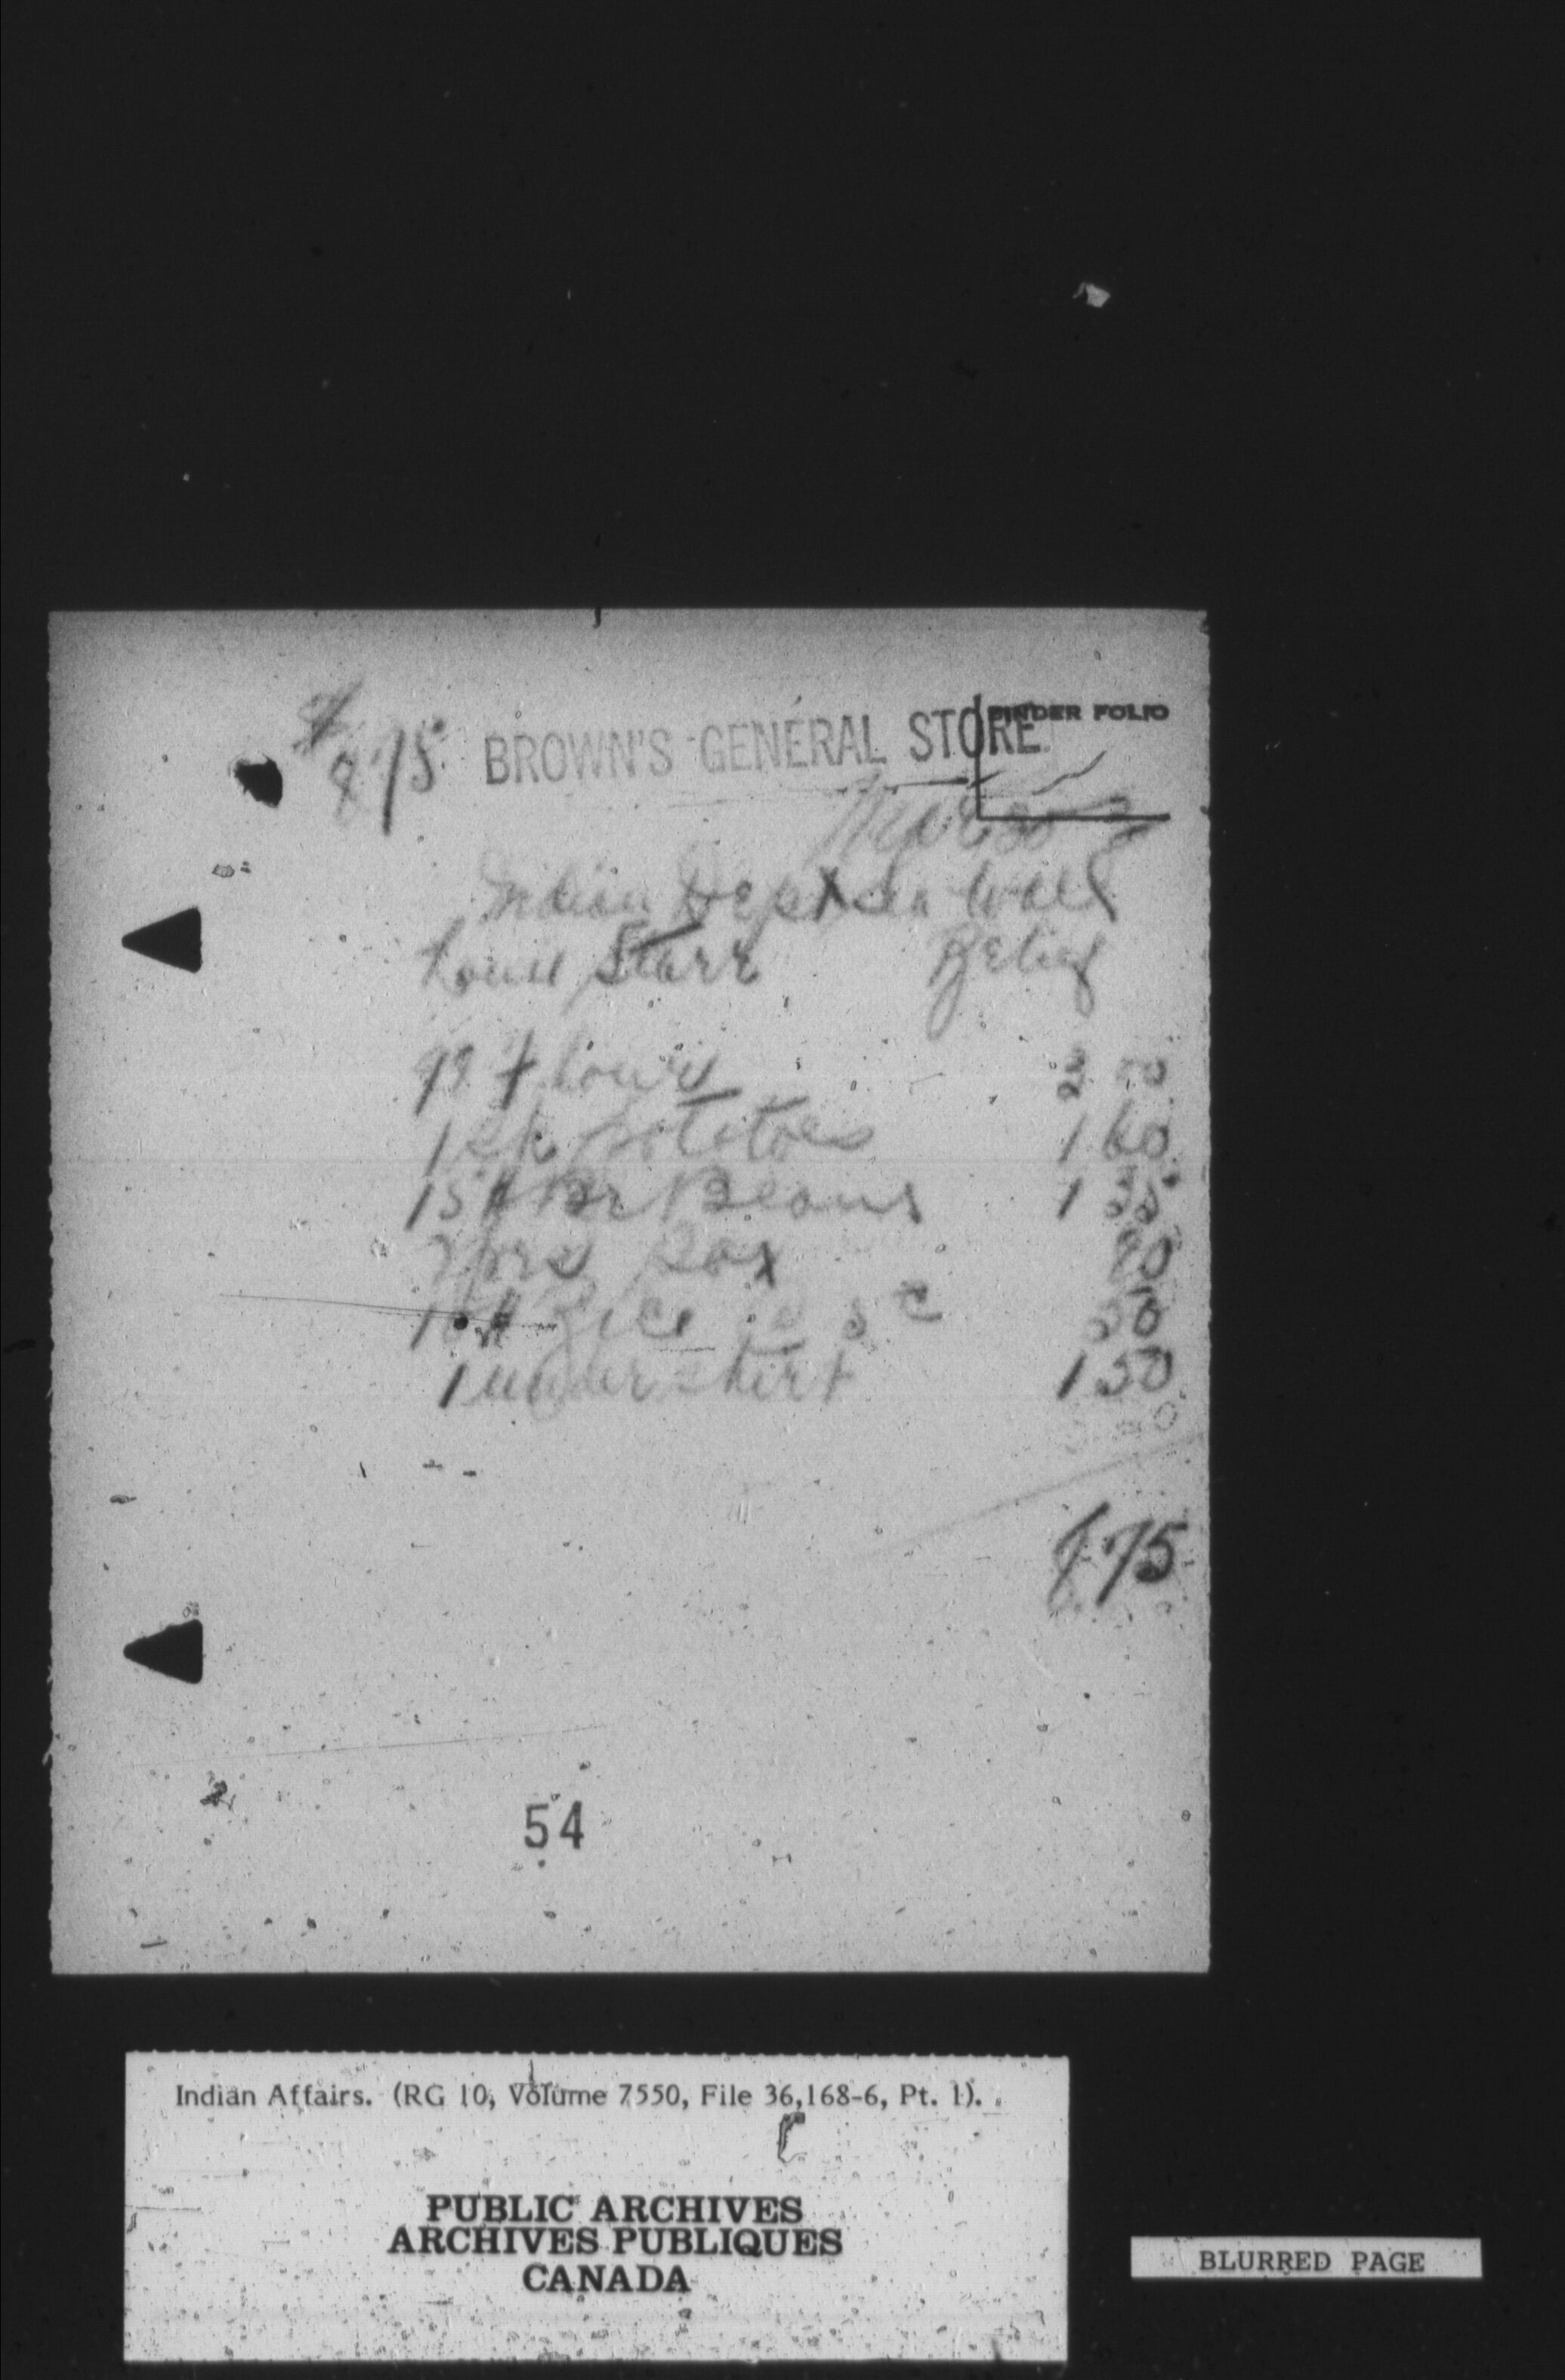 $
8.75 BROWN'S GENERAL STORE
BINDER FOLIO
Mar 30
Indian Dept
Louie Starr Relief
98 flour 3 00
1 sk potatoes 1 60
15# Br Beans 1 35
2 prs Sox 80
10# Rice 5c 50
1 undershirt 1 50
8.75
54
Indian Affairs. (RG 10, Volume 7550, File 36,168-6, Pt. 1).
PUBLIC ARCHIVES
ARCHIVES PUBLIQUES
CANADA
BLURRED PAGE